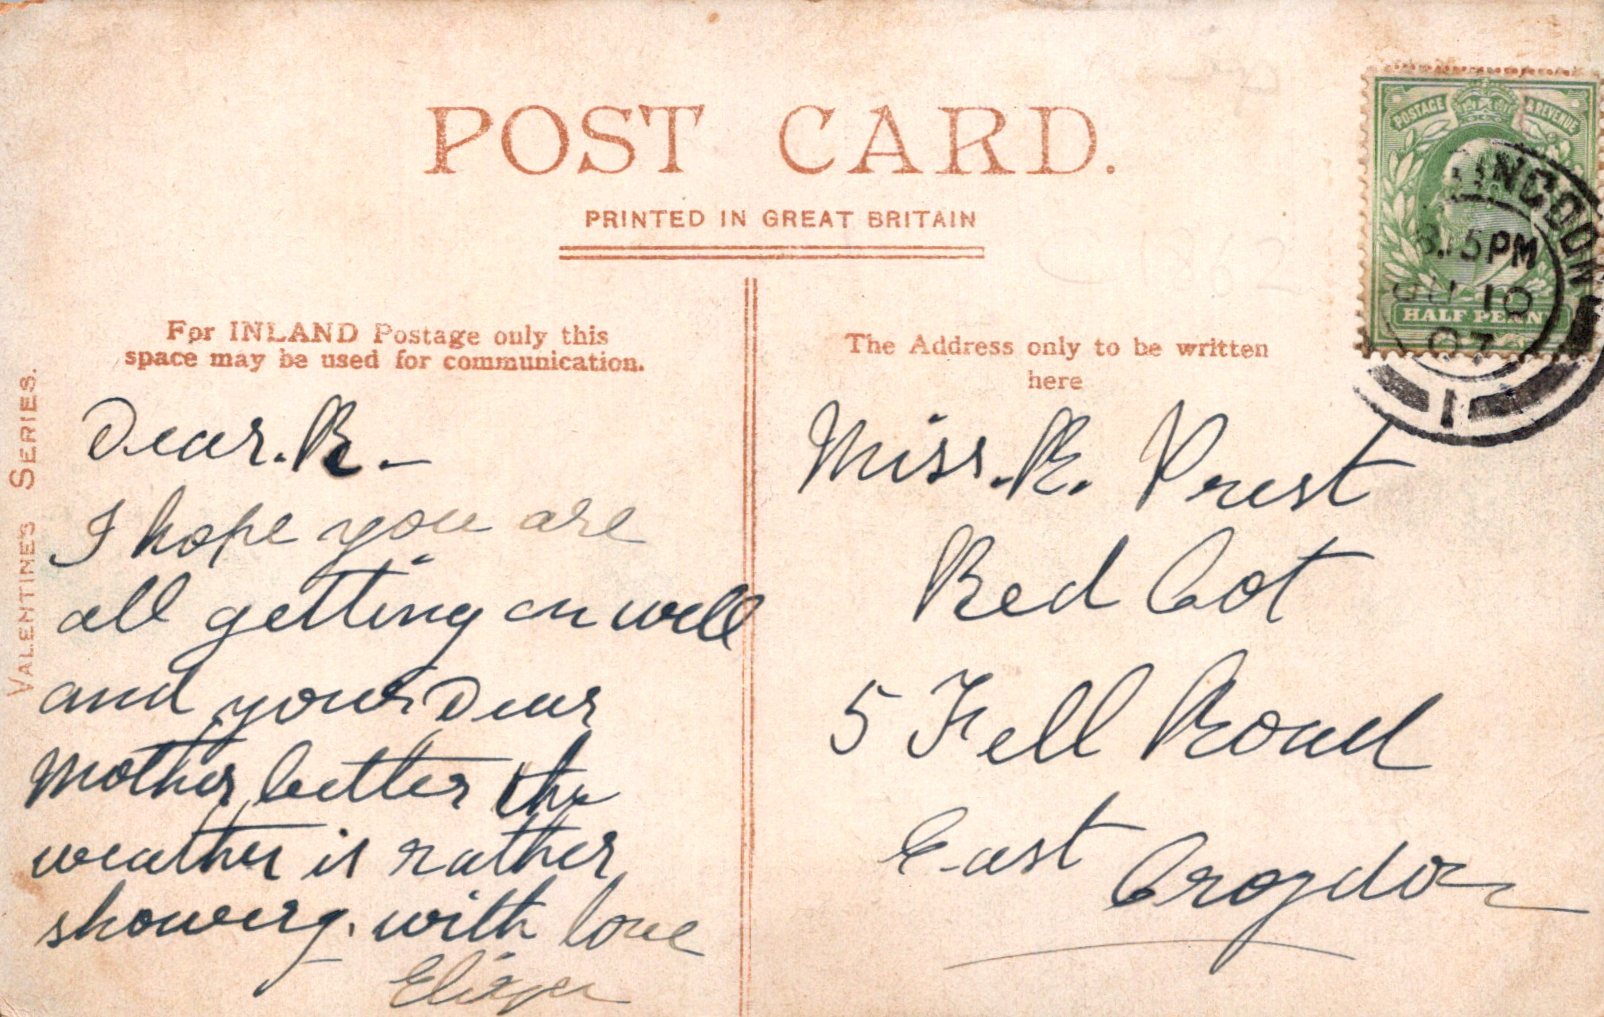 POST CARD.
PRINTED IN GREAT BRITAIN
For INLAND Postage only this
space may be used for communication.
The Address only to be written
here
VALENTINE'S SERIES.
POSTAGE & REVENUE
HALF PENNY
8.15PM
10
07
1
Dear. R. –
I hope you are
all getting on well
and your Dear
Mother better the
weather is rather
showery. with love
Miss. R. Prest
Red Cot
5 Fell Road
East Croydon